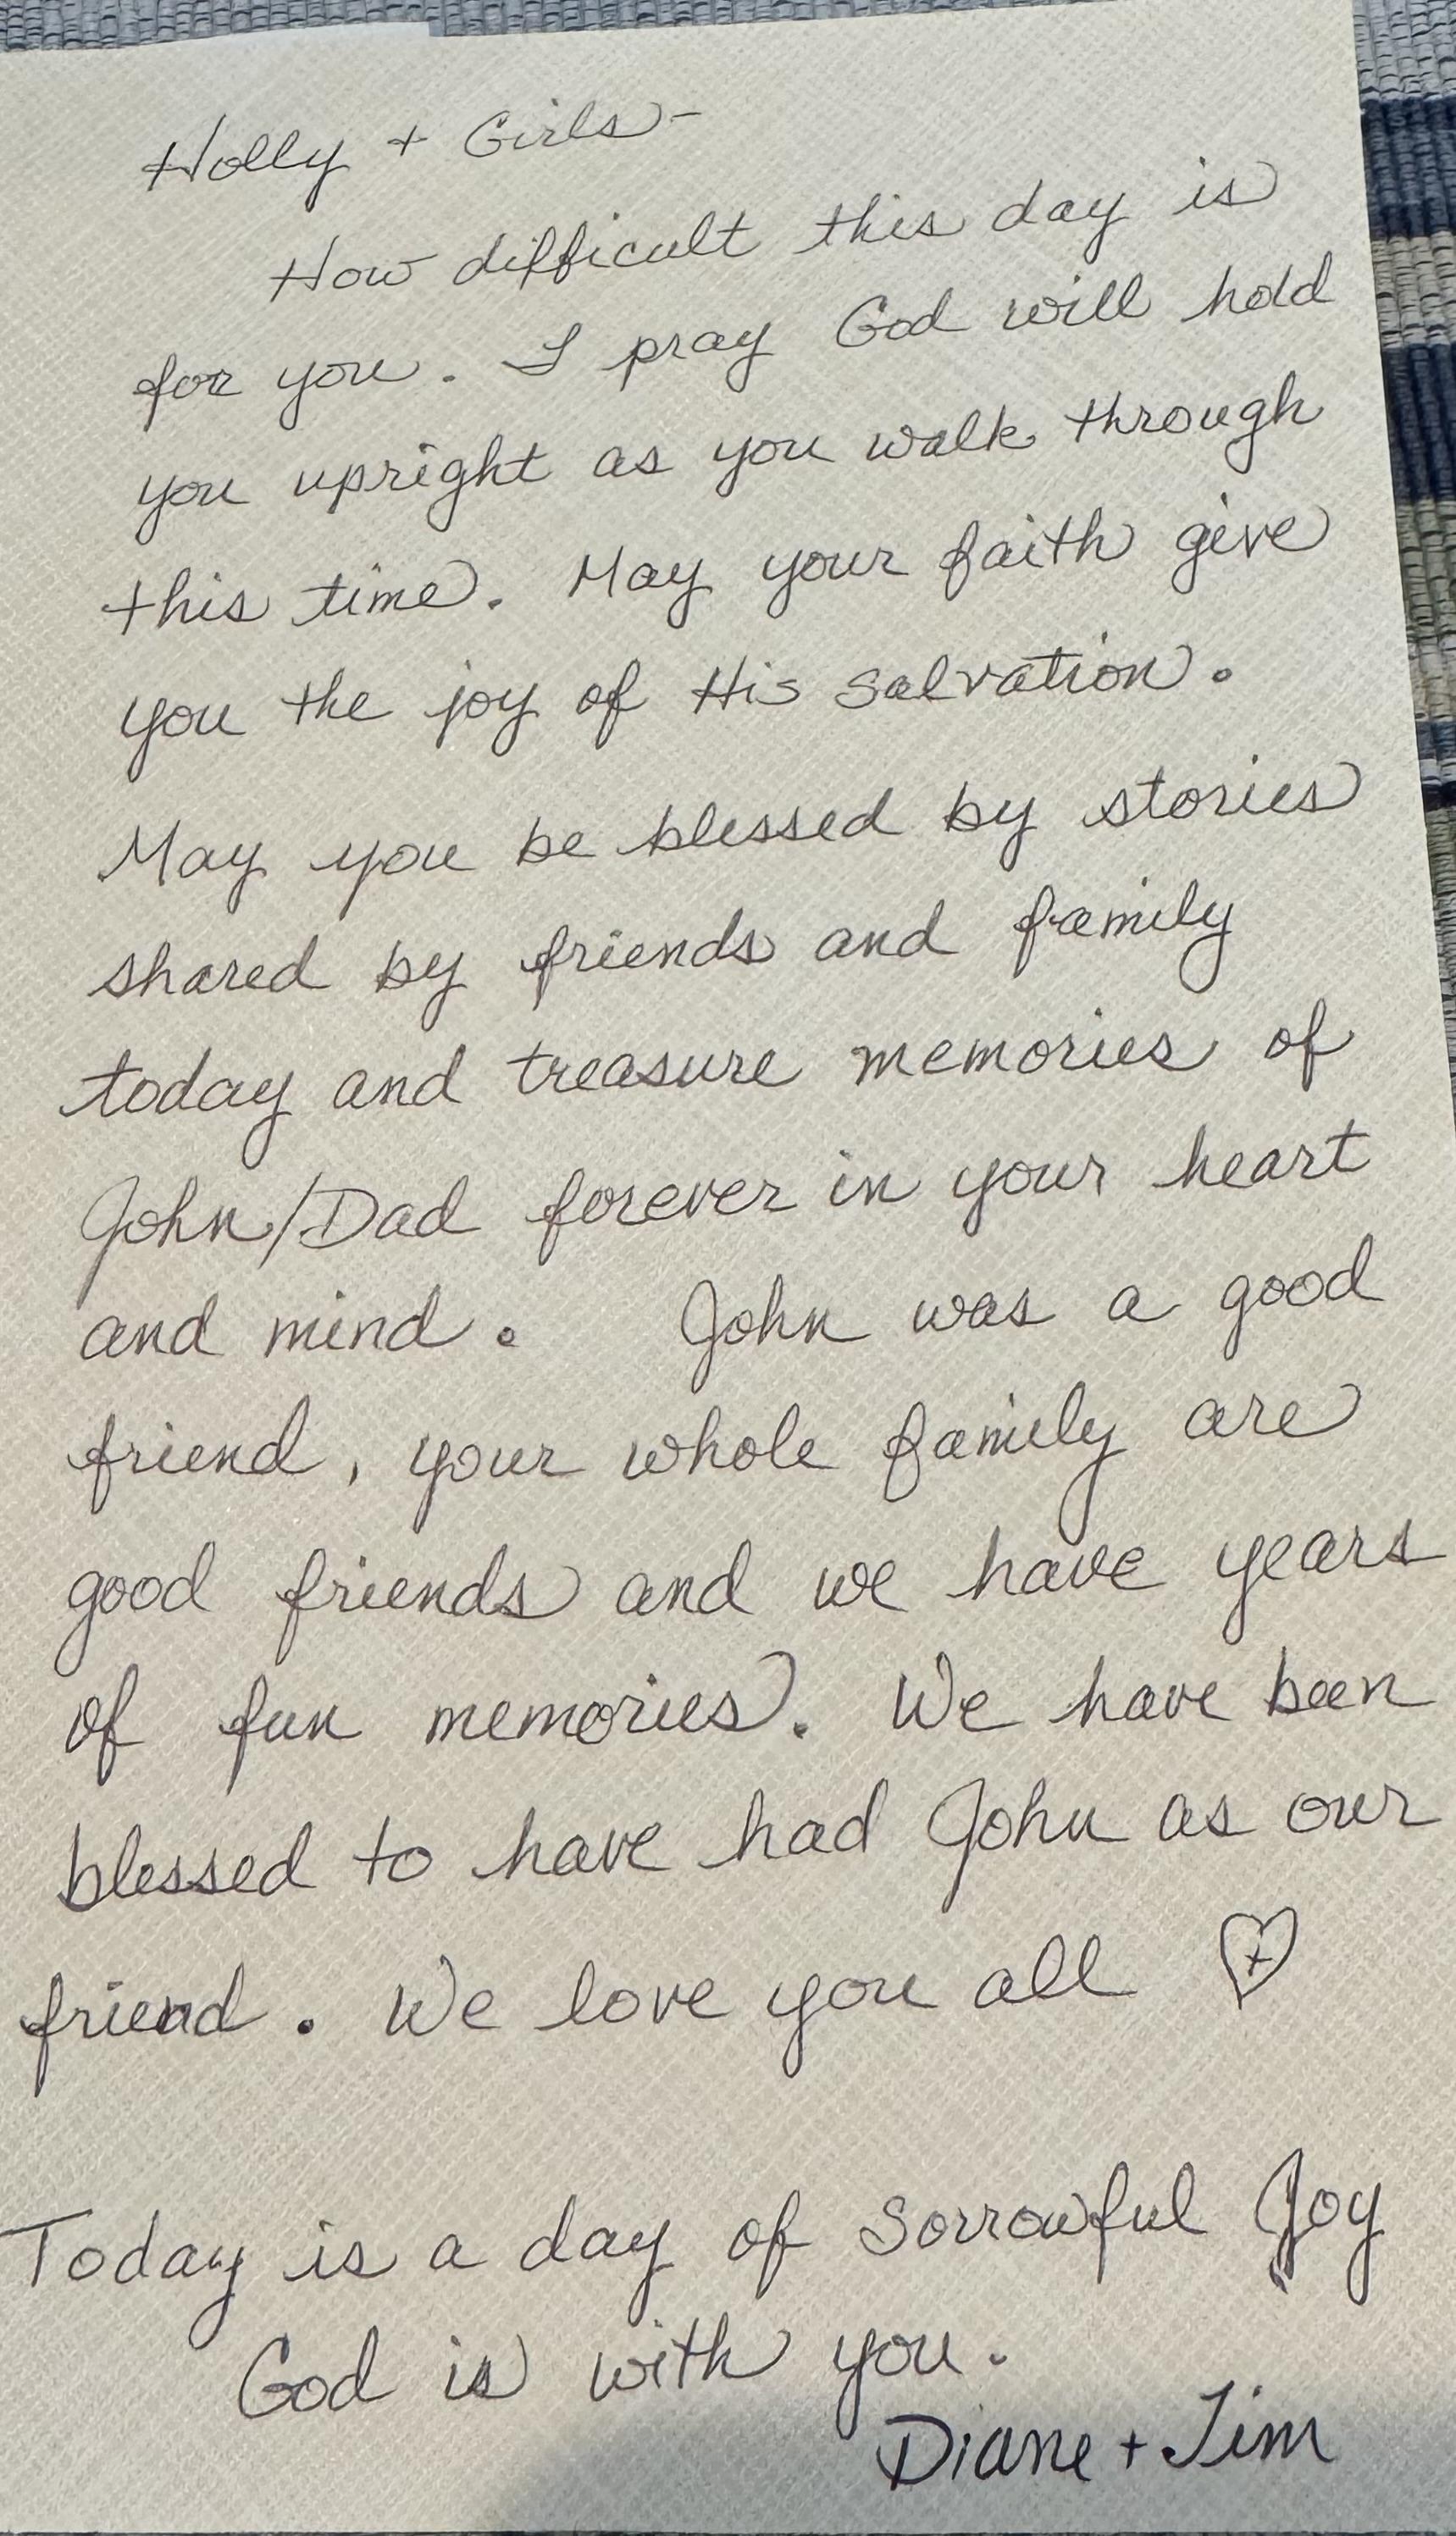 Holly + Girls-
How difficult this day is
for you. I pray God will hold
you upright as you walk through
this time. May your faith give
you the joy of His salvation.
May you be blessed by stories
shared by friends and family
today and treasure memories of
John/Dad forever in your heart
and mind. John was a good
friend, your whole family are
good friends and we have years
of fun memories. We have been
blessed to have had John as our
friend. We love you all ♡
Today is a day of sorrowful Joy
God is with you.
Diane + Jim